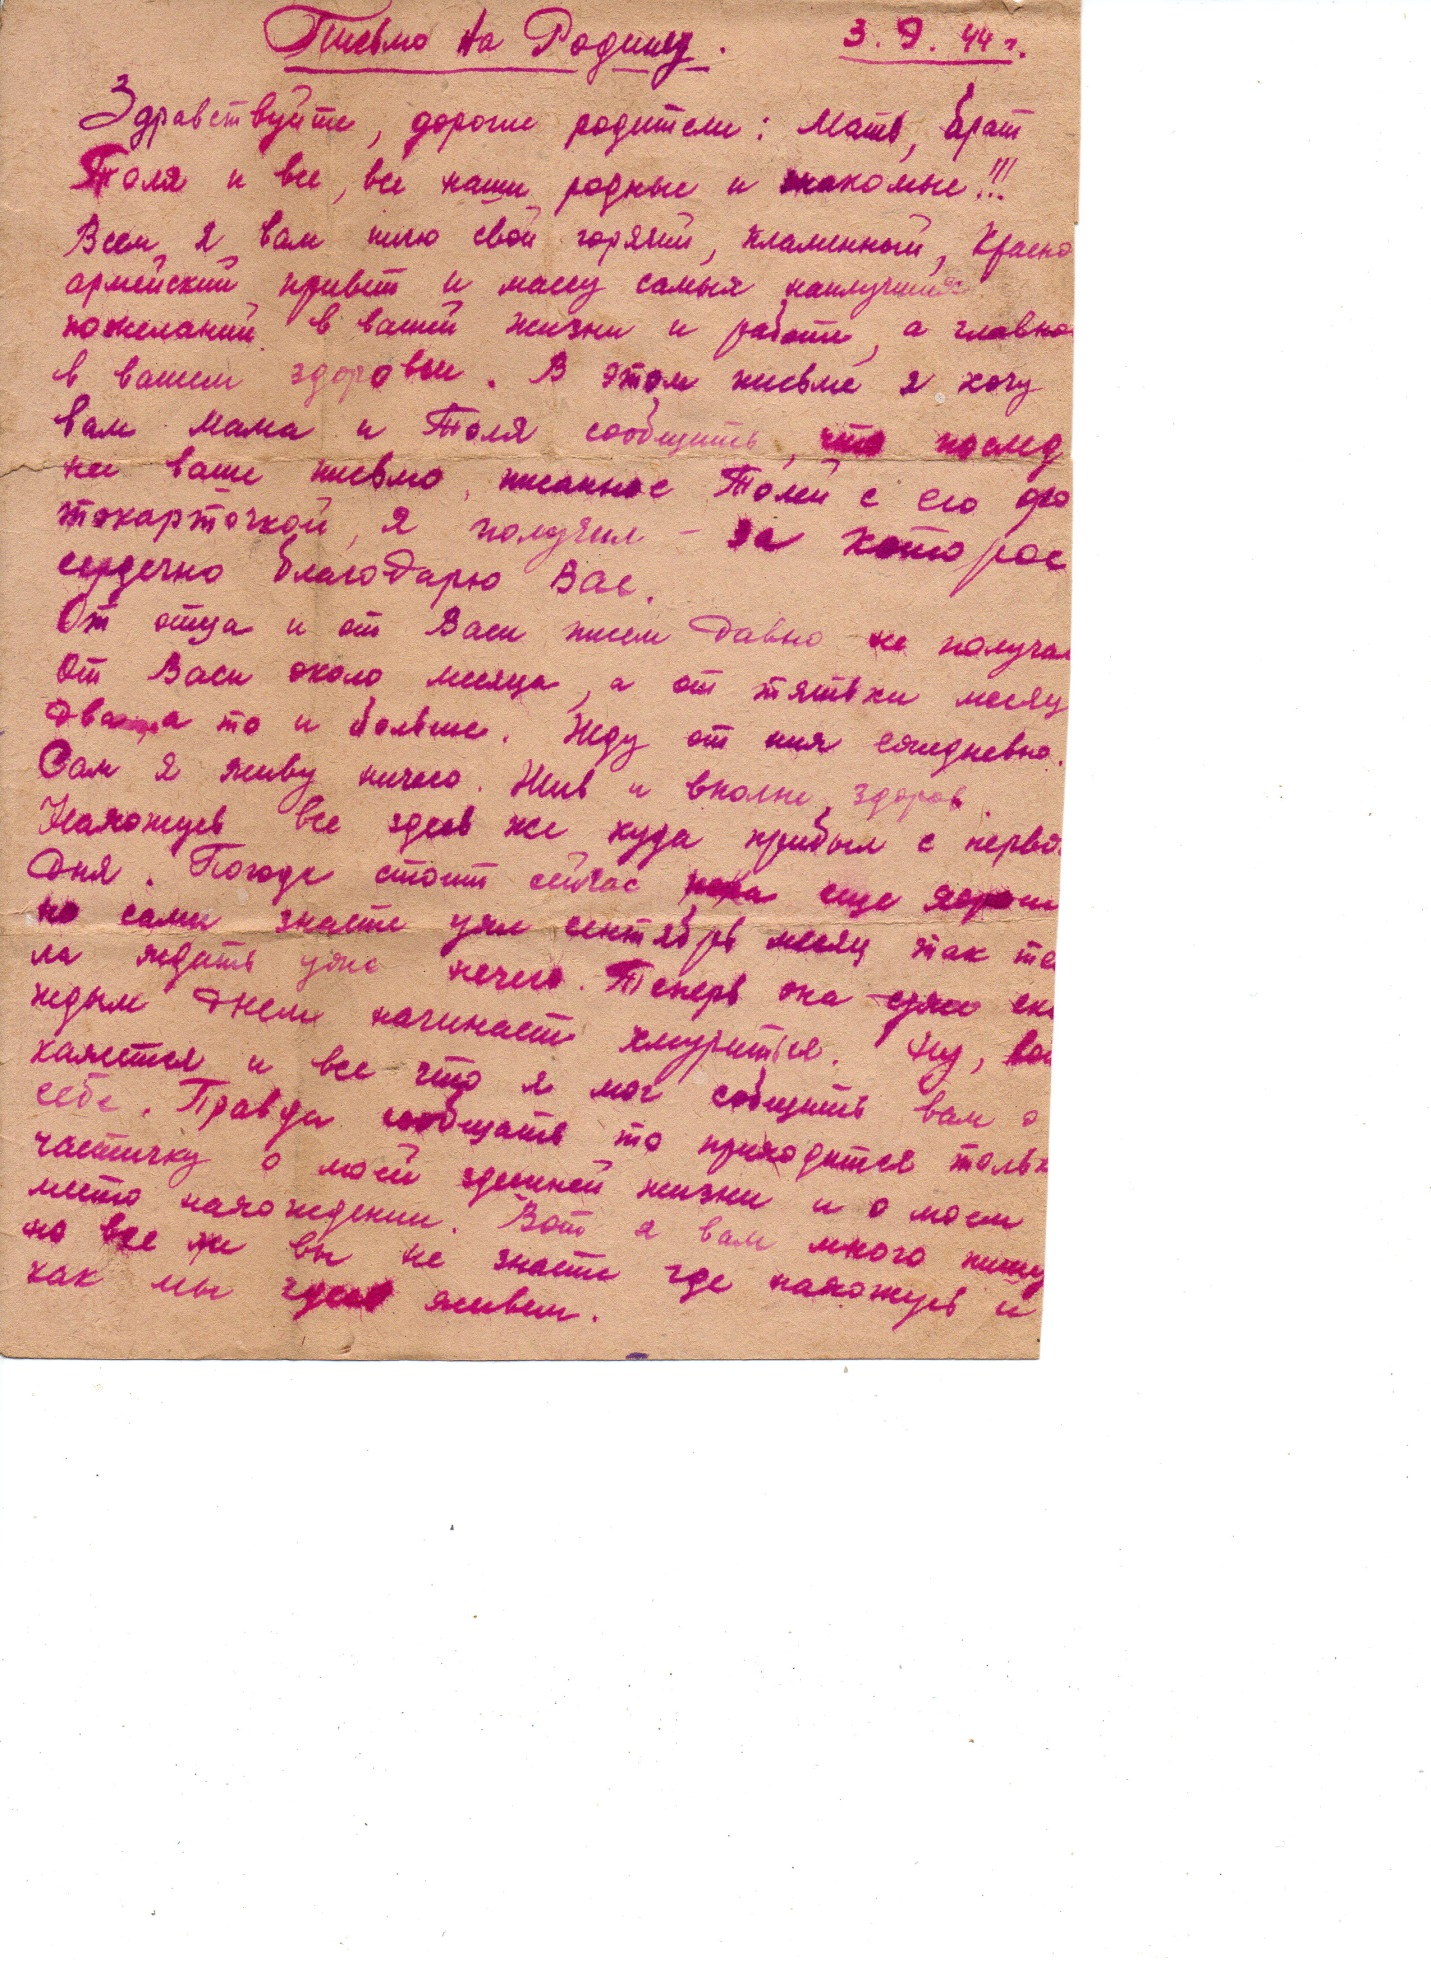 Письмо на Родину. 3.9.44 г.
Здравствуйте, дорогие родители: Мать, брат
Толя и все, все наши родные и знакомые!!!
Всем я вам шлю свой горячий, пламенный, Красно
армейский привет и массу самых наилучших
пожеланий в вашей жизни и работе, а главно
в вашем здоровьи. В этом письме я хочу
вам Мама и Толя сообщить, что послед
нее ваше письмо, писанное Толей с его фо
токарточкой, я получил – за которое
сердечно благодарю Вас.
От отца и от Васи писем давно не получал
От Васи около месяца, а от тятьки месяц
два а то и больше. Жду от них ежедневно.
Сам я живу ничего. Жив и вполне здоров.
Нахожусь все здесь же куда прибыл с перво
дня. Погода стоит сейчас пока еще хорош
но сами знаете уже сентябрь месяц так те
ла ждать уже нечего. Теперь она уже ка
ждым днем начинает хмуриться. Ну, вот
кажется и все что я мог собщить вам о
себе. Правда сообщать то приходится тольк
частичку о моей здешней жизни и о моем
место нахождении. Вот я вам много пишу
но все же вы не знаете где нахожусь и
как мы здесь живем.